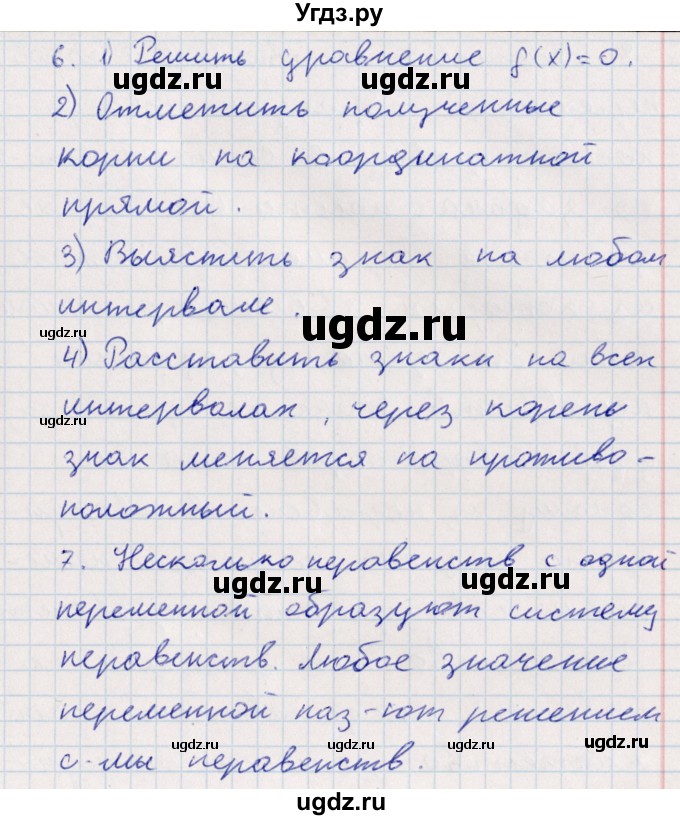 Угдз.ру
6. 1) Решить уравнение f(x)=0.
2) Отметить полученные
корни на координатной
прямой.
3) Выястить знак на любом
ugdz.ru
интервале.
ugdz.ru
ugdz.ru
4) Расставить знаки на всех
интервалах, через корень
ugdz.ru
ugdz.ru
знак меняется на противо-
положный.
7. Несколько неравенств с одной
ugdz.ru
ugdz.ru
переменной образуют систему
неравенств. Любое значение
переменной наз-ют решением
ugdz.ru
ugdz.ru
ugdz.ru
с-мы неравенств.
ugdz.ru